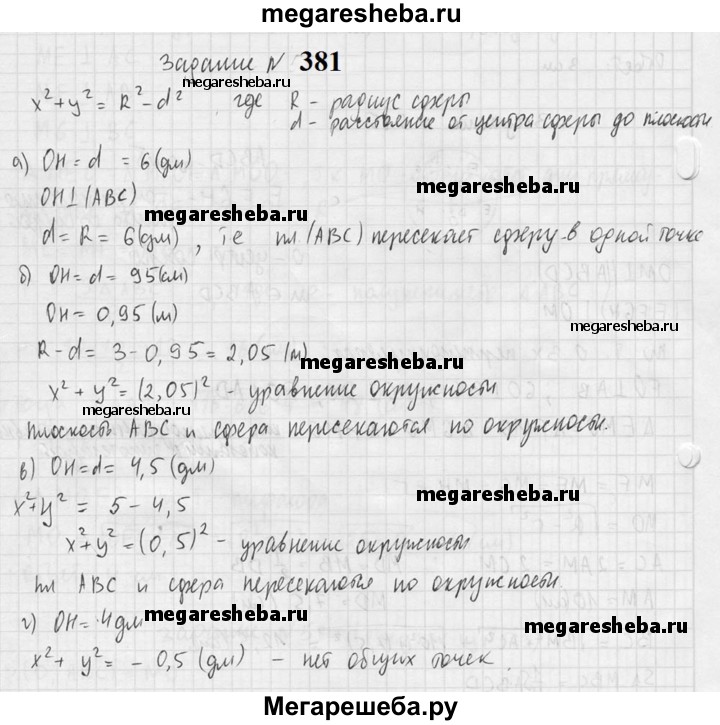 megaresheba.ru
Задание № 381
megaresheba.ru
x²+y² = R²-d² где R - радиус сферы
d - расстояние от центра сферы до плоскости
а) OH = d = 6 (дм)
OH⊥(ABC)
megaresheba.ru
d = R = 6(дм), т.е пл. (ABC) пересекает сферу в одной точке
б) OH = d = 95(см)
OH = 0,95 (м)
megaresheba.ru
R - d = 3 - 0,95 = 2,05 (м)
megaresheba.ru
x² + y² = (2,05)² - уравнение окружности
megaresheba.ru
плоскость ABC и сфера пересекаются по окружности.
в) OH = d = 4,5 (дм)
megaresheba.ru
x²+y² = 5 - 4,5
x²+y² = (0,5)² - уравнение окружности
пл ABC и сфера пересекаются по окружности.
г) OH = 4дм
megaresheba.ru
x² + y² = - 0,5 (дм) - нет общих точек.
Мегарешеба.ру